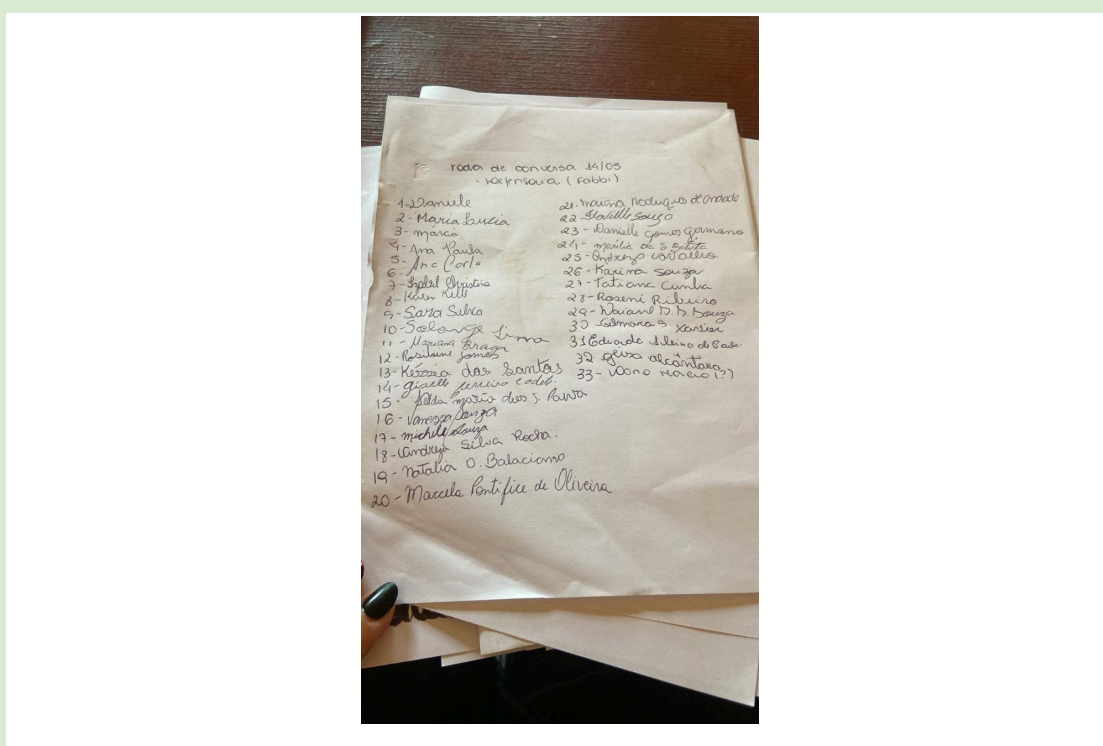 roda de conversa 14/05
- Defensoria (Fabbi)
1- Daniele
2- Maria Lucia
3- marcia
4- Ana Paula
5- Ana Carla
6-
7- Izabel Christina
8- Karen Kelli
9- Sara Silva
10- Solange Lima
11- Mariana Braga
12- Rosilaine Gomes
13- Kérzzia dos Santos
14- giselle
15- maria das J. Paiva
16- Vanessa Souza
17- michele Souza
18- Andreza Silva Rocha.
19- natalia O. Balaciano
20- Marcela Pontifice de Oliveira
21- maiana Rodrigues de Andrade
22- Souza
23- Danielle gomes germano
24- marilia da S. Batista
25- carvalho
26- Karina Souza
27- Tatiana Cunha
28- Roseni Ribeiro
29- Souza
30 Gilmara S. Xavier
31 Eduardo
32 alcântara
33- (?)